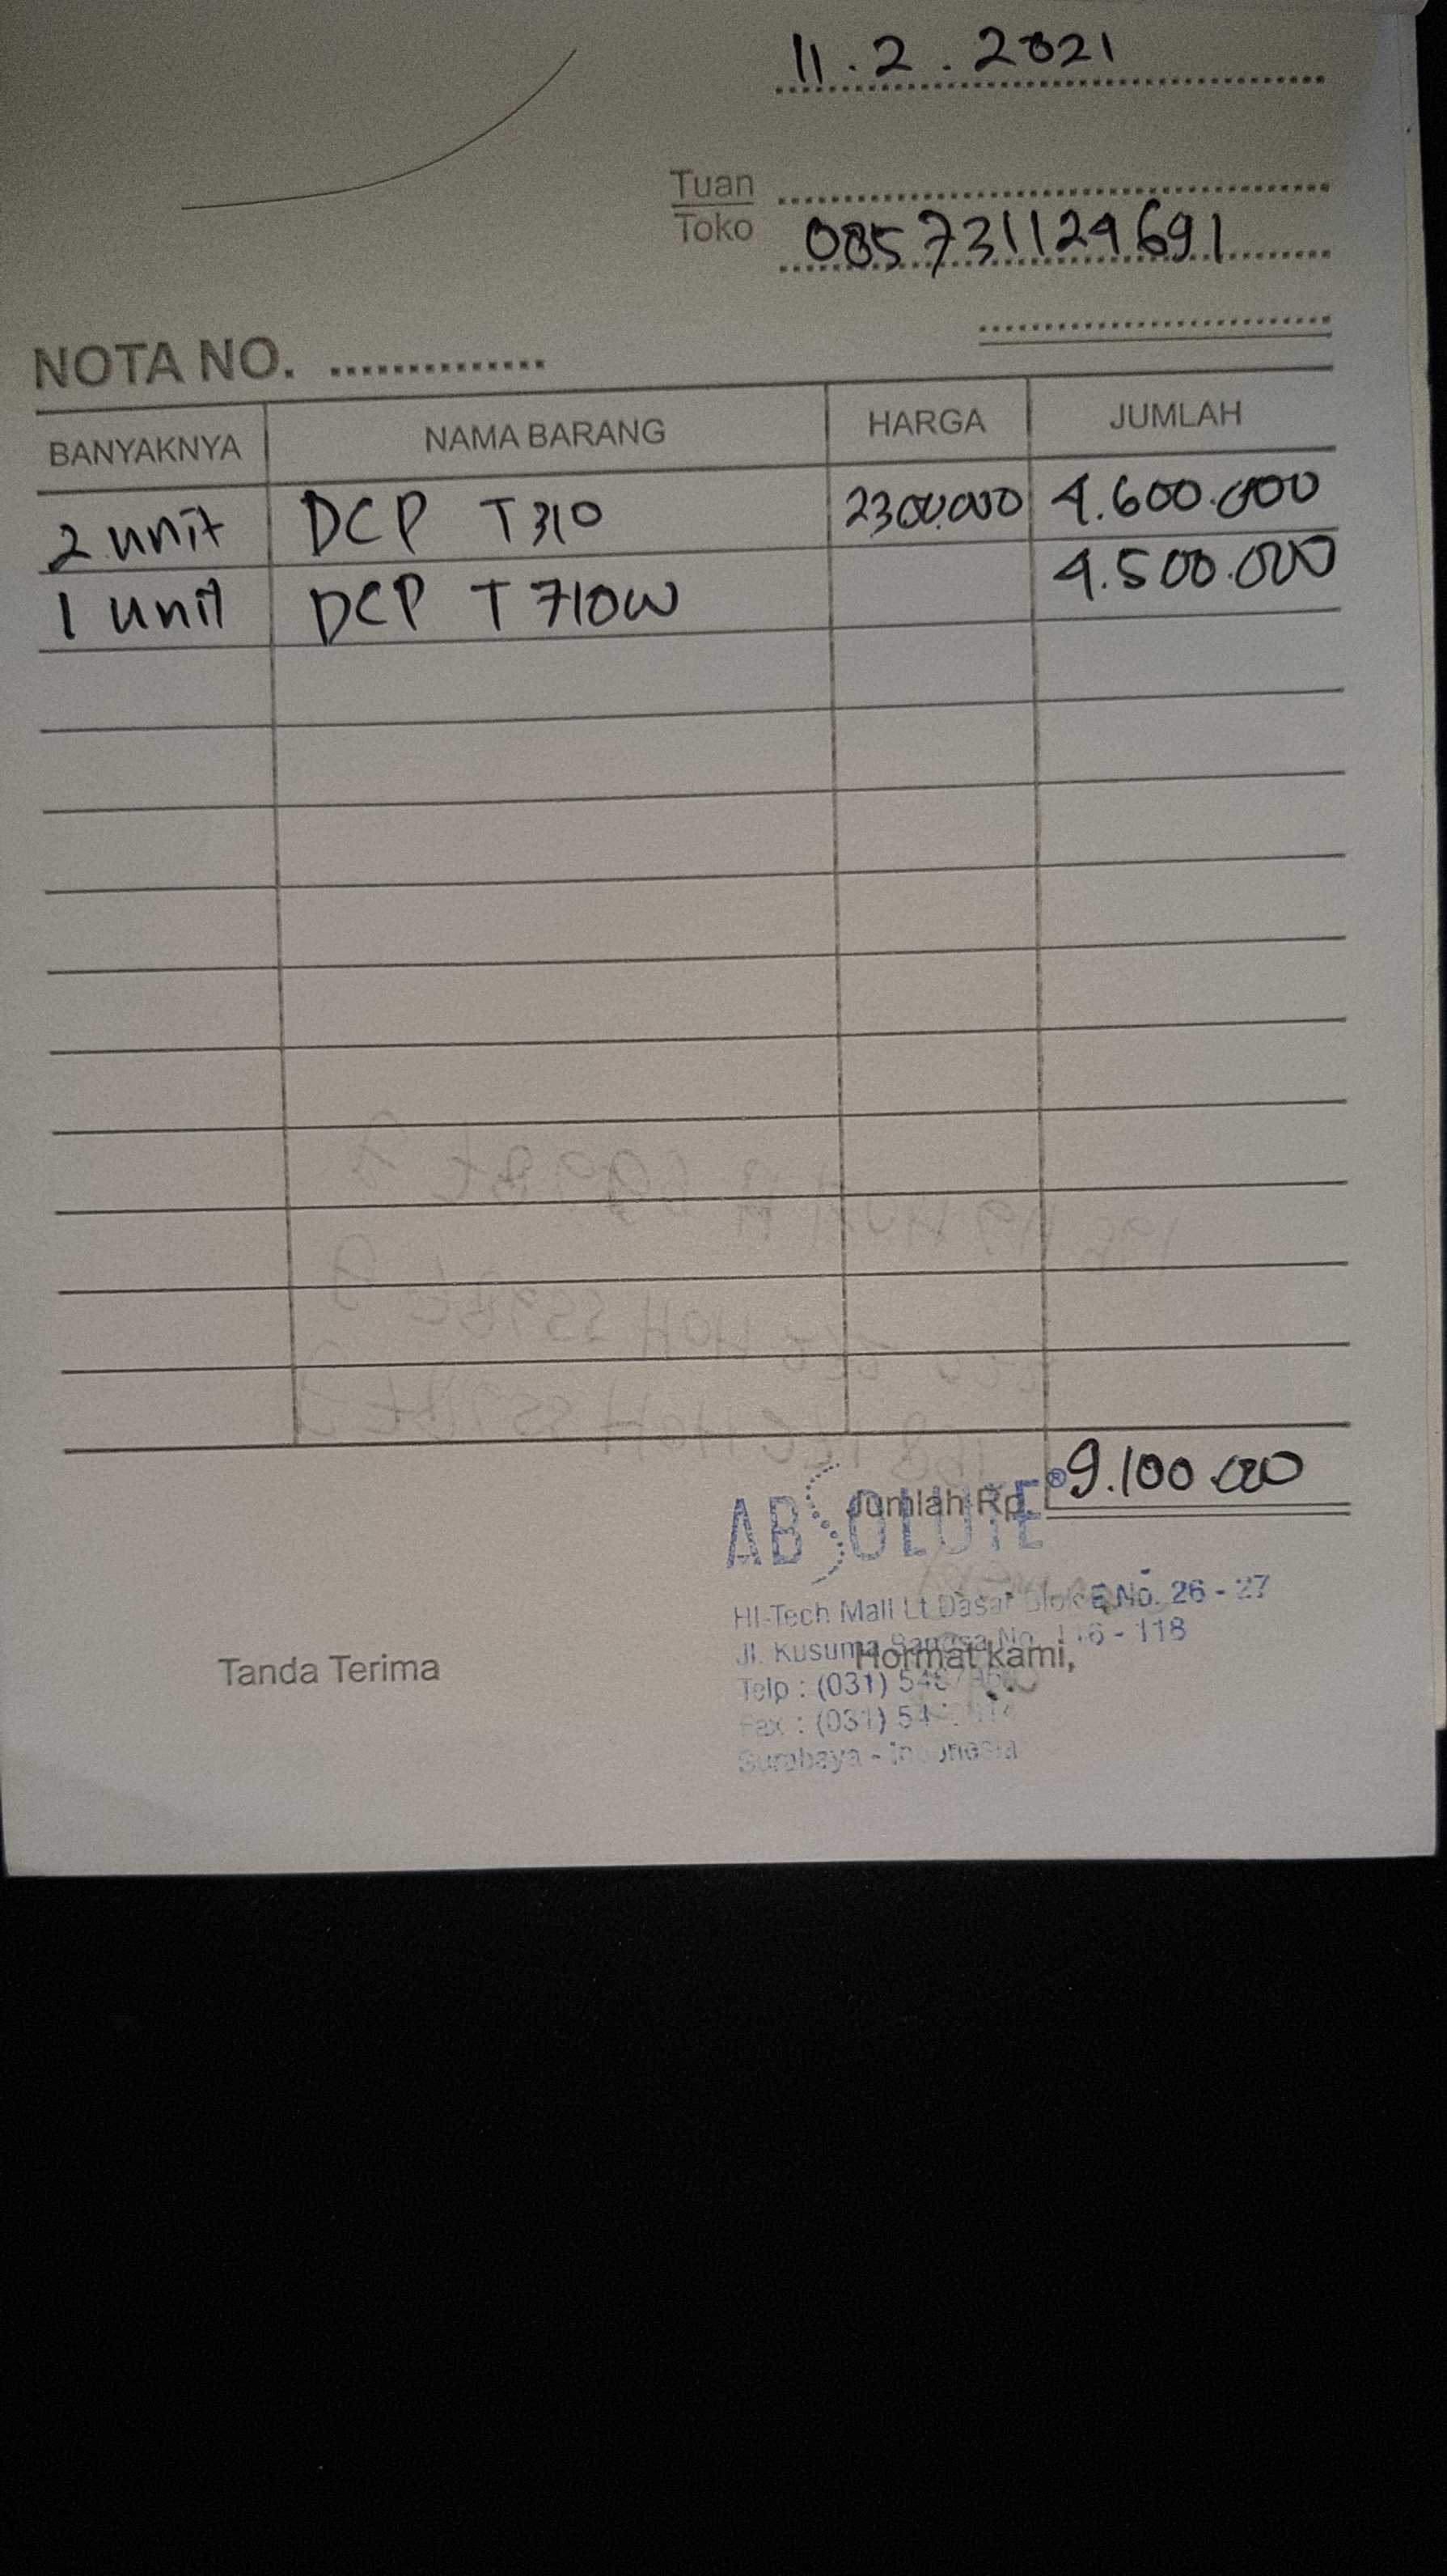 11.2.2021
Tuan
Toko 085731129691
NOTA NO. ..............
BANYAKNYA NAMA BARANG HARGA JUMLAH
2 unit DCP T310 2300.000 4.600.000
1 unit DCP T710W 4.500.000
Jumlah Rp. 9.100.000
ABSOLUTE®
HI-Tech Mall Lt Dasar Blok E No. 26 - 27
Jl. Kusuma Bangsa No. 116 - 118
Tanda Terima Hormat kami,
Telp : (031)
Fax : (031)
Surabaya - Indonesia